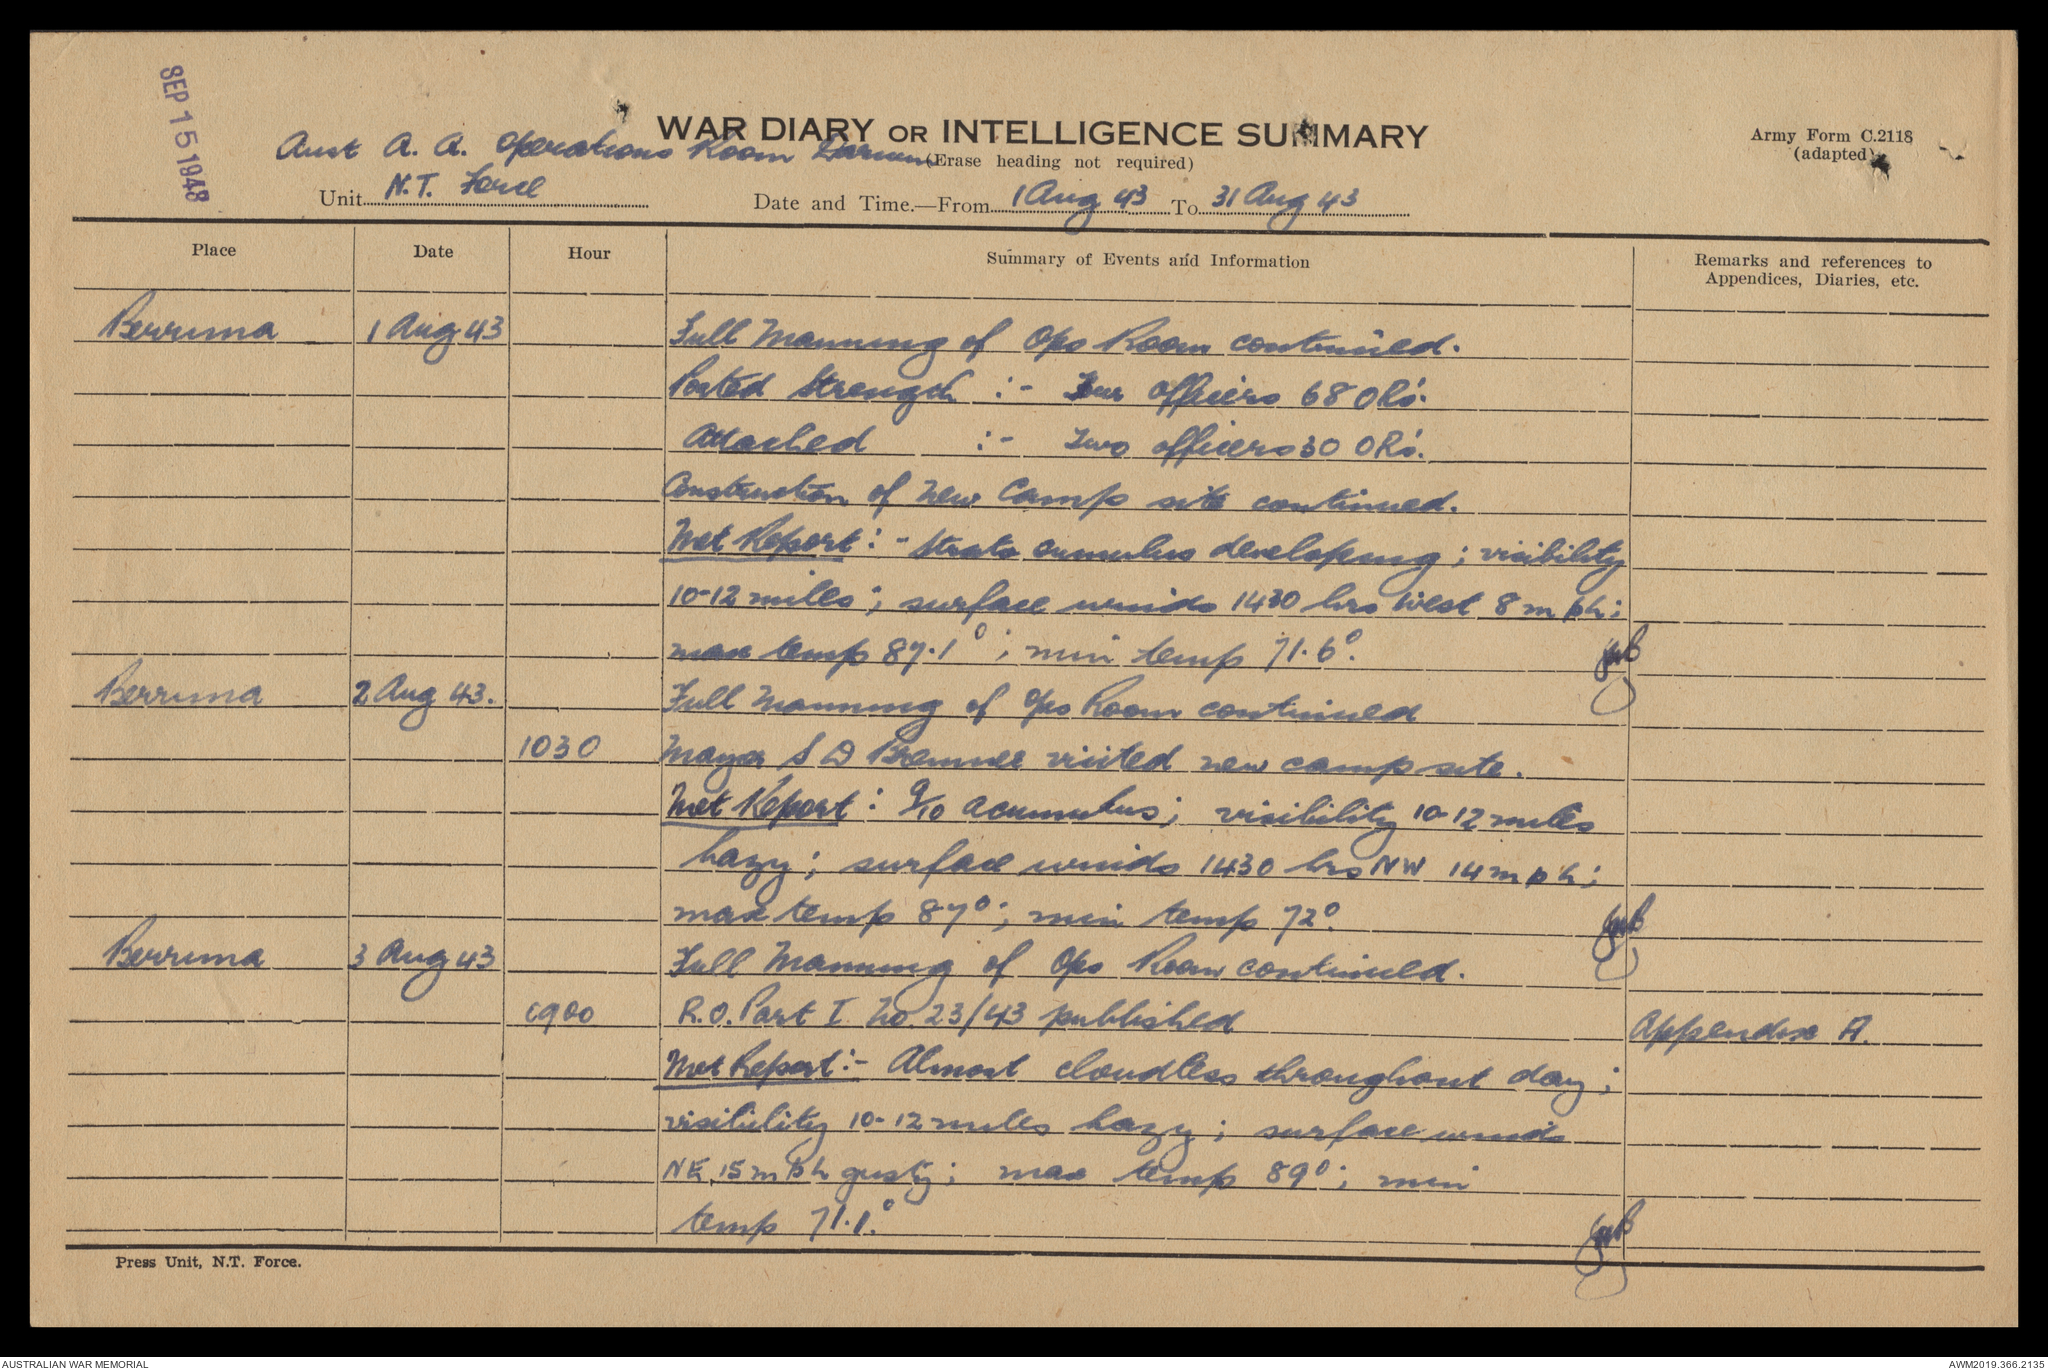 SEP 15 1943
WAR DIARY OR INTELLIGENCE SUMMARY
Army Form C.2118
(adapted)
Aust A. A. Operations Room Darwin
(Erase heading not required)
Unit N.T. Force
Date and Time.—From 1 Aug 43 To 31 Aug 43
Place Date Hour Summary of Events and Information Remarks and references to
Appendices, Diaries, etc.
Berrima 1 Aug 43 Full Manning of Ops Room continued.
Posted Strength :- Four officers 68 ORs.
Attached :- Two officers 30 ORs.
Construction of new Camp site continued.
Met Report :- Strato cumulus developing ; visibility
10-12 miles ; surface winds 1430 hrs West 8 mph ;
max temp 87.1° ; min temp 71.6°.
Berrima 2 Aug 43. Full Manning of Ops Room continued
1030 Major S D Bremner visited new camp site.
Met Report : 9/10 acumulus ; visibility 10-12 miles
hazy ; surface winds 1430 hrs NW 14 mph ;
max temp 87° ; min temp 72°.
Berrima 3 Aug 43 Full Manning of Ops Room continued.
0900 R.O. Part I No. 23/43 published Appendix A.
Met Report :- Almost cloudless throughout day ;
visibility 10-12 miles hazy ; surface winds
NE 15 mph gusty ; max temp 89° ; min
temp 71.1.°
Press Unit, N.T. Force.
AUSTRALIAN WAR MEMORIAL
AWM2019.366.2135